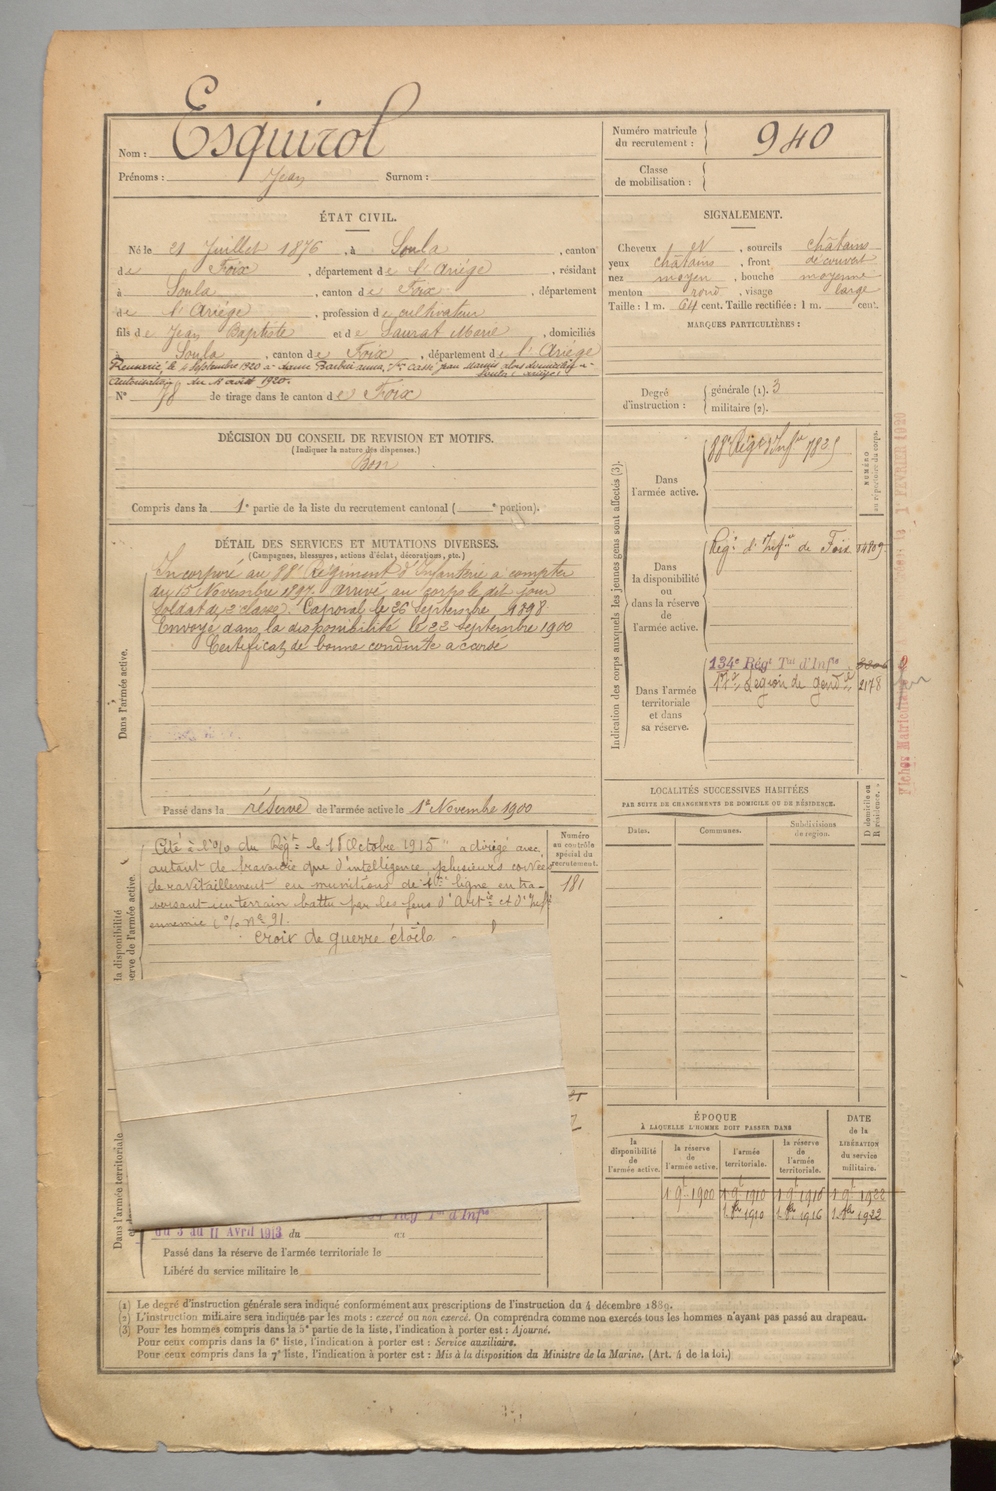 Nom : Esquirol
Prénoms : Jean Surnom :
Numéro matricule du recrutement : 940
Classe de mobilisation :
ÉTAT CIVIL.
Né le 21 Juillet 1876, à Soula, canton
de Foix, département de l'Ariège, résidant
à Soula, canton de Foix, département
de l'Ariège, profession de cultivateur
fils de Jean Baptiste et de Laurat Marie, domiciliés
à Soula, canton de Foix, département de l'Ariège
Remarié le 4 Septembre 1920 à
du 18 août 1920.
N° 78 de tirage dans le canton de Foix
SIGNALEMENT.
Cheveux et, sourcils châtains
yeux châtains, front découvert
nez moyen, bouche moyenne
menton rond, visage large
Taille : 1 m. 64 cent. Taille rectifiée : 1 m. cent.
MARQUES PARTICULIÈRES :
Degré d'instruction : générale (1). 3
militaire (2).
DÉCISION DU CONSEIL DE REVISION ET MOTIFS.
(Indiquer la nature des dispenses.)
Bon
Compris dans la 1e partie de la liste du recrutement cantonal ( e portion).
DÉTAIL DES SERVICES ET MUTATIONS DIVERSES.
(Campagnes, blessures, actions d'éclat, décorations, etc.)
Dans l'armée active.
Incorporé au 88e Régiment d'Infanterie à compter
du 15 Novembre 1897. Arrivé au corps le dit jour
Soldat de 2e classe. Caporal le 26 Septembre 1898.
Envoyé dans la disponibilité le 22 Septembre 1900
Certificat de bonne conduite accordé
Passé dans la réserve de l'armée active le 1er Novembre 1900
Indication des corps auxquels les jeunes gens sont affectés (3).
NUMÉRO au répertoire du corps.
Dans l'armée active.
88e Régt d'Infie 7825
Dans la disponibilité ou dans la réserve de l'armée active.
Régt d'Infie de Foix 14809
Dans l'armée territoriale et dans sa réserve.
134e Régt Tal d'Infie
Légion de Gend 2178
Fiches Matricules
1er FÉVRIER 1920
LOCALITÉS SUCCESSIVES HABITÉES
PAR SUITE DE CHANGEMENTS DE DOMICILE OU DE RÉSIDENCE.
Dates. Communes. Subdivisions de région.
D domicile ou R résidence.
la disponibilité
serve de l'armée active.
Numéro au contrôle spécial du recrutement.
181
Cité à l'o/o du Régt le 18 Octobre 1915 " a dirigé avec
autant de bravoure que d'intelligence plusieurs corvées
de ravitaillement en munitions de 1ère ligne en tra-
versant un terrain battu par les feux d'Artie et d'Infie
ennemie o/o n° 91.
Croix de guerre étoile
Dans l'armée territoriale
Régt Tal d'Infie
du 3 au 11 Avril 1913 du au
Passé dans la réserve de l'armée territoriale le
Libéré du service militaire le
ÉPOQUE
À LAQUELLE L'HOMME DOIT PASSER DANS
la disponibilité de l'armée active.
la réserve de l'armée active.
l'armée territoriale.
la réserve de l'armée territoriale.
DATE de la LIBÉRATION du service militaire.
1 9bre 1900 1 9bre 1910 1 9bre 1916 1 9bre 1922
1 8bre 1910 1 8bre 1916 1 8bre 1922
(1) Le degré d'instruction générale sera indiqué conformément aux prescriptions de l'instruction du 4 décembre 1889.
(2) L'instruction militaire sera indiquée par les mots : exercé ou non exercé. On comprendra comme non exercés tous les hommes n'ayant pas passé au drapeau.
(3) Pour les hommes compris dans la 5e partie de la liste, l'indication à porter est : Ajourné.
Pour ceux compris dans la 6e liste, l'indication à porter est : Service auxiliaire.
Pour ceux compris dans la 7e liste, l'indication à porter est : Mis à la disposition du Ministre de la Marine. (Art. 4 de la loi.)